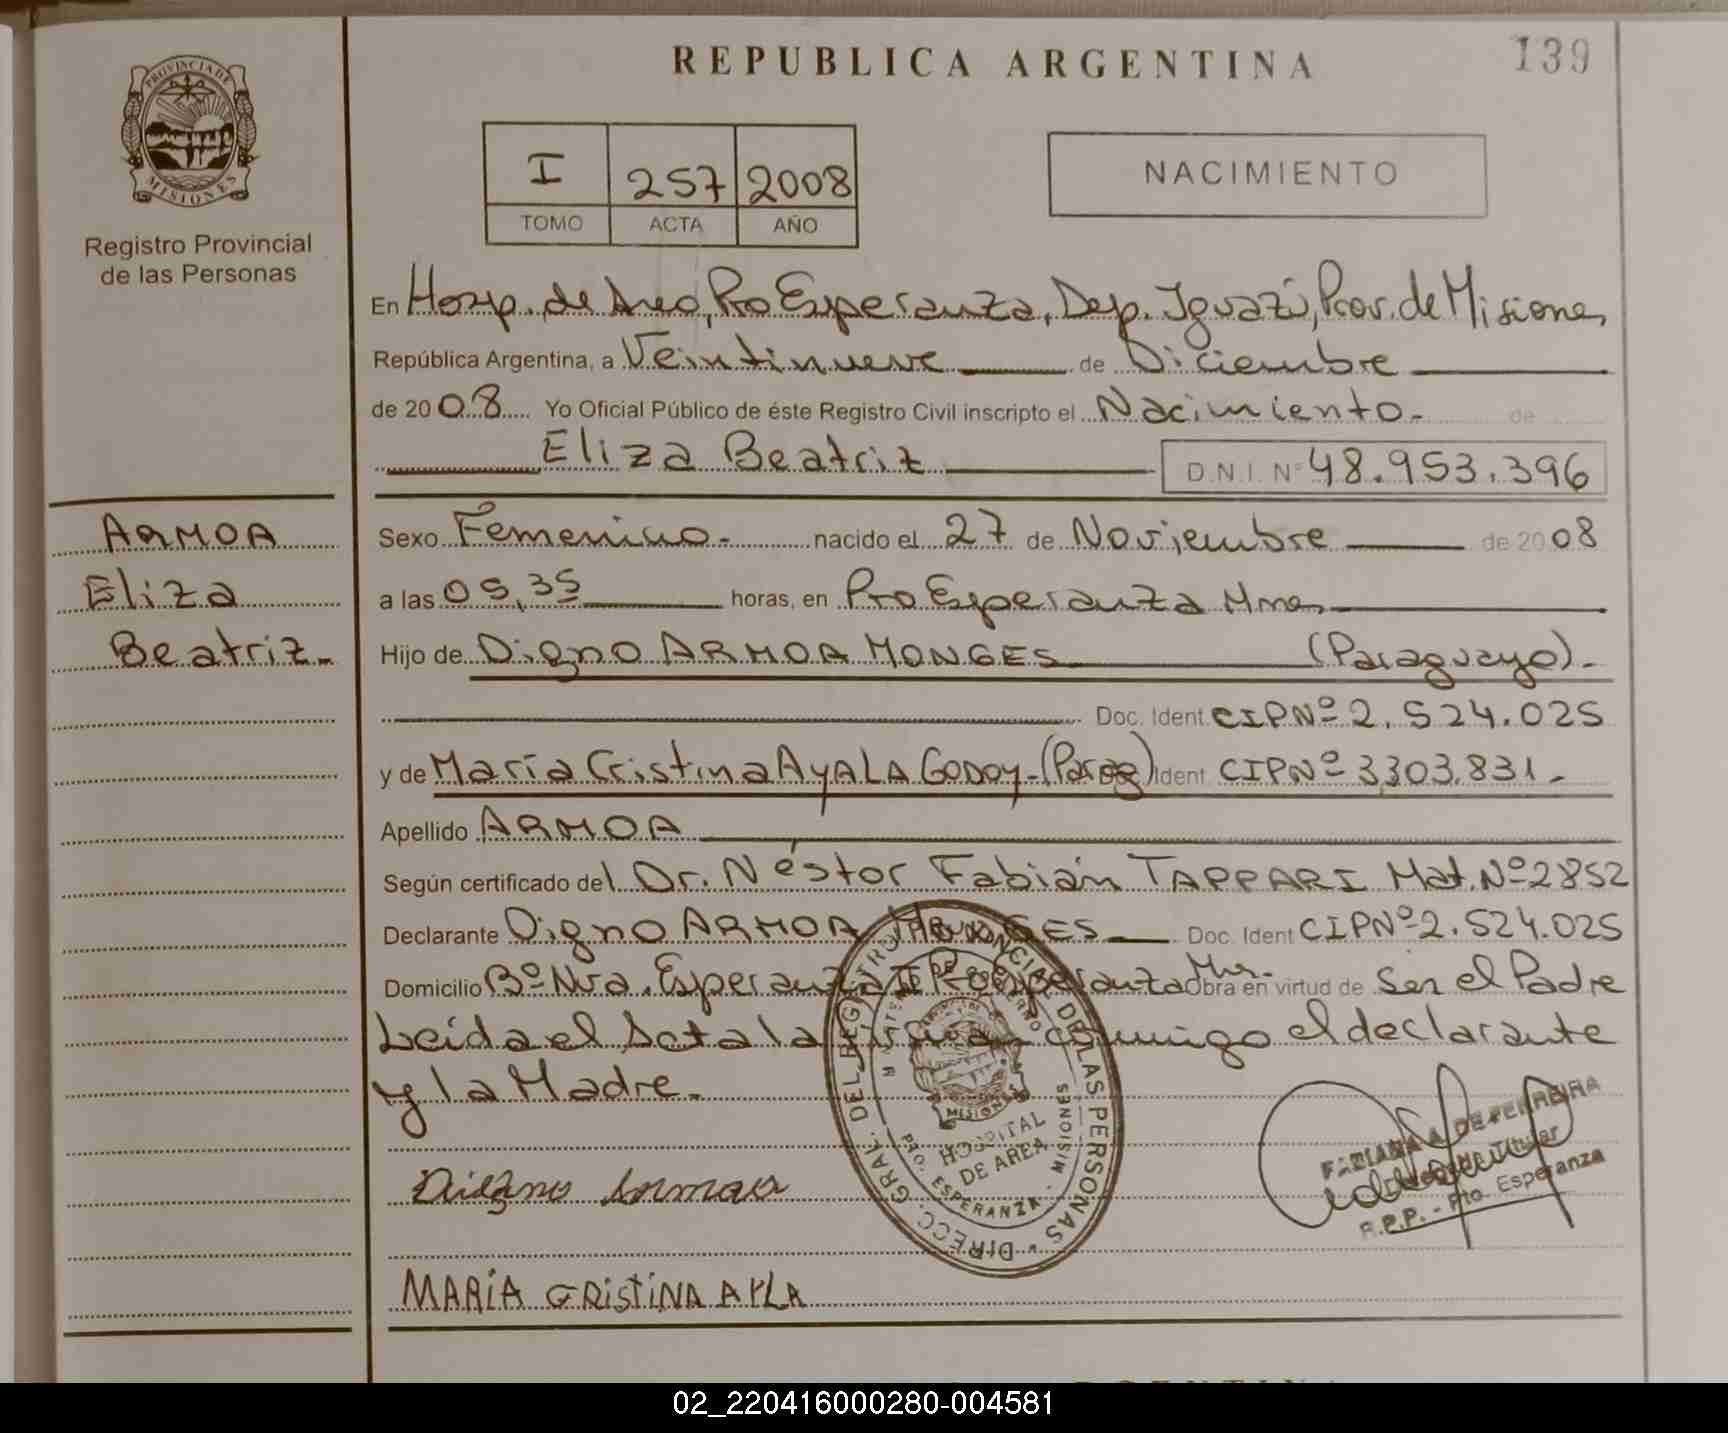 REPUBLICA ARGENTINA
139
PROVINCIA DE
MISIONES
Registro Provincial
de las Personas
I 257 2008
TOMO ACTA AÑO
NACIMIENTO
En Hosp. de Area, Pto Esperanza, Dep. Iguazú, Prov. de Misiones
República Argentina, a Veintinueve de Diciembre
de 2008 Yo Oficial Público de éste Registro Civil inscripto el Nacimiento. de
Eliza Beatriz D.N.I. Nº 48.953.396
ARMOA
Eliza
Beatriz.
Sexo Femenino. nacido el 27 de Noviembre de 2008
a las 05,35 horas, en Pto Esperanza Mnes.
Hijo de Digno ARMOA MONGES (Paraguayo).
Doc. Ident. CIPNº 2.524.025
y de María Cristina AYALA GODOY-(Parag) Ident. CIPNº 3,303.831.
Apellido ARMOA
Según certificado del Dr. Néstor Fabián TAPPARI Mat. Nº 2852
Declarante Digno ARMOA MONGES Doc. Ident CIPNº 2.524.025
Domicilio Bº Nra. Esperanza Pto Esperanza Mnes. obra en virtud de Ser el Padre
Leída el Acta la firman conmigo el declarante
y la Madre.
DIRECC. GRAL. DEL REGISTRO PROVINCIAL DE LAS PERSONAS
MISIONES
HOSPITAL
DE AREA
PTO. ESPERANZA - MISIONES
FABIANA A. DE FERREIRA
Titular
R.P.P. - Pto. Esperanza
MARIA CRISTINA AYLA
02_220416000280-004581